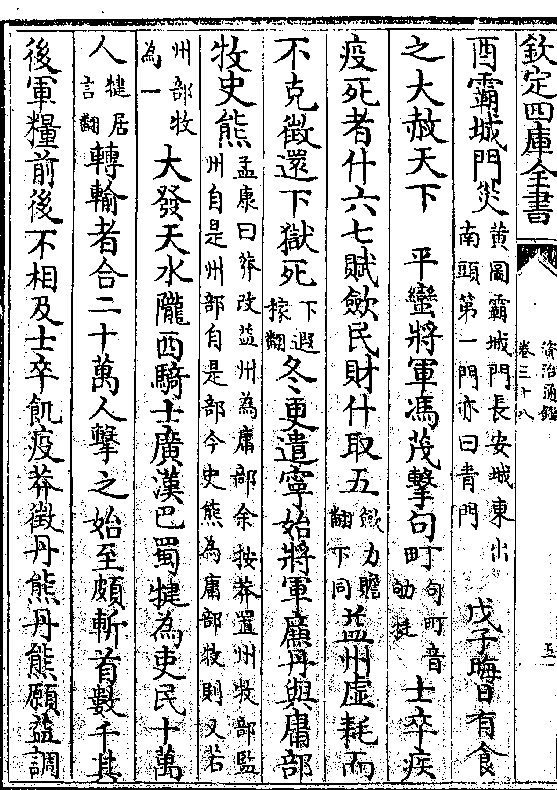 欽定四庫全書 資治通鑑 卷三十八 五
酉霸城門災黄圖霸城門長安城東出南頭第一門亦曰青門 戊子晦日有食
之大赦天下 平蠻將軍馮茂擊句町句町音劬挺士卒疾
疫死者什六七賦斂民財什取五斂力贍翻下同益州虛耗而
不克徵還下獄死下遐稼翻冬更遣寧始將軍廉丹與庸部
牧史熊孟康曰莽改益州為庸部余按莽置州牧部監州自是州部自是部今史熊為庸部牧則又若
州部牧為一大發天水隴西騎士廣漢巴蜀犍為吏民十萬
人犍居言翻轉輸者合二十萬人擊之始至頗斬首數千其
後軍糧前後不相及士卒飢疫莽徵丹熊丹熊願益調